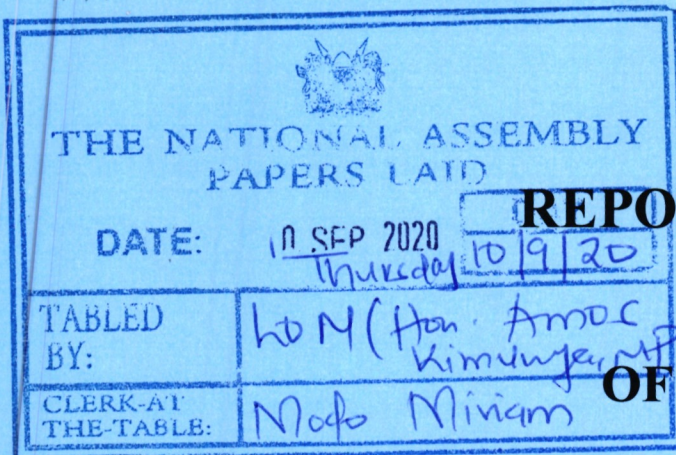 THE NATIONAL ASSEMBLY
PAPERS LAID
REPO
DATE: 10 SEP 2020
Thursday 10/9/20
TABLED BY: LOM (Hon. Amos Kimunya, MP
OF
CLERK-AT THE-TABLE: Modo Miriam